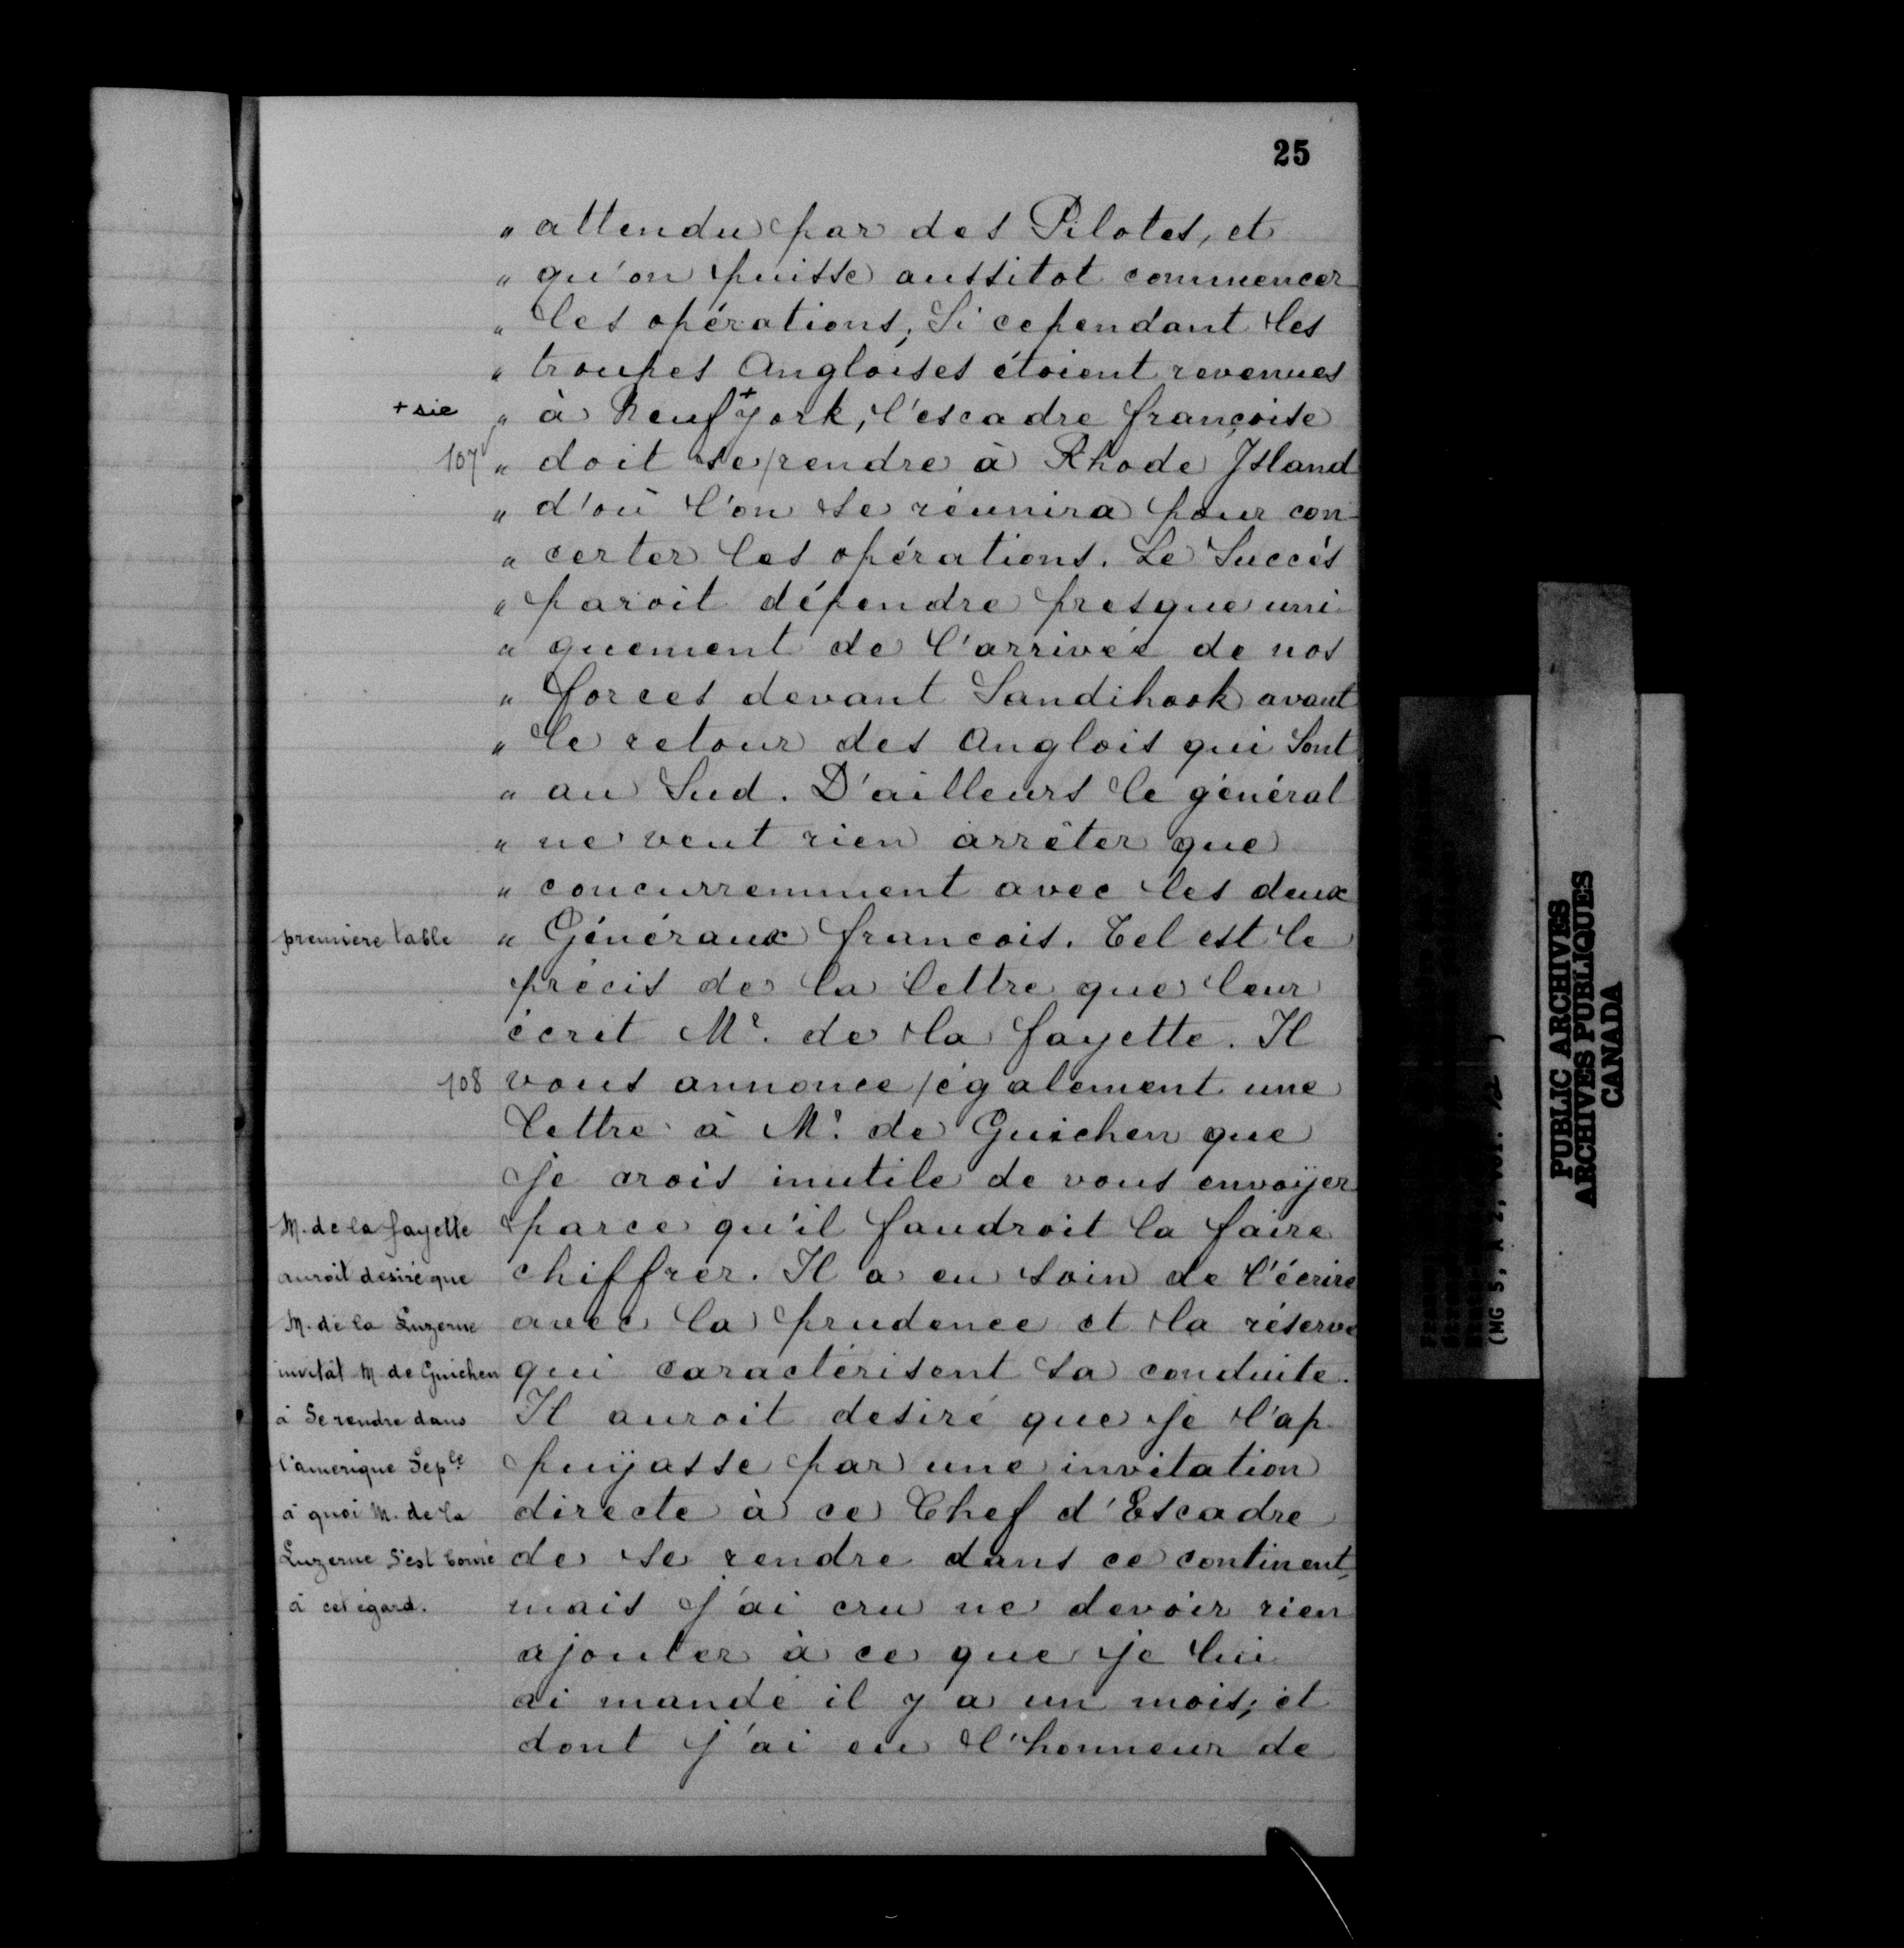 25
" attendu par des Pilotes, et
" qu'on puisse aussitot commencer
" les opérations; Si cependant les
" troupes Angloises étoient revenues
+ sic " à Neuf + york, l'escadre françoise
107 " doit se / rendre à Rhode Island
" d'où l'on se réunira pour con-
" certer les opérations. Le Succès
" paroit dépendre presque uni-
" quement de l'arrivée de nos
" forces devant Sandihook avant
" le retour des Anglois qui Sont
" au Sud. D'ailleurs le général
" ne veut rien arrêter que
" concurremment avec les deux
premiere table " Généraux francois. Tel est le
précis de la lettre que leur
écrit Mr. de la fayette. Il
108 vous annonce / également une
lettre à Mr. de Guichen que
je crois inutile de vous envoÿer
M. de la fayette parce qu'il faudroit la faire
auroit desiré que chiffrer. Il a eu soin de l'écrire
M. de la Luzerne avec la prudence et la réserve
invitât M de Guichen qui caractérisent sa conduite.
à Se rendre dans Il auroit desiré que je l'ap-
l'amerique Seple puÿasse par une invitation
à quoi M. de la directe à ce Chef d'Escadre
Luzerne S'est borné de se rendre dans ce continent
à cet égard. mais j'ai cru ne devoir rien
ajouter à ce que je lui
ai mandé il y a un mois; et
dont j'ai eu l'honneur de
(MG 5, A 2, VOL. 12 )
PUBLIC ARCHIVES
ARCHIVES PUBLIQUES
CANADA